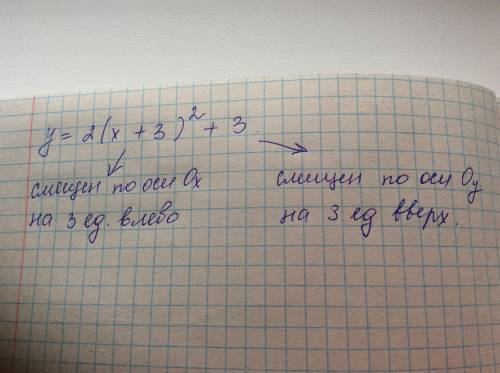 y = 2(x + 3)² + 3
смещен по оси Ox
на 3 ед. влево
смещен по оси Oy
на 3 ед вверх.